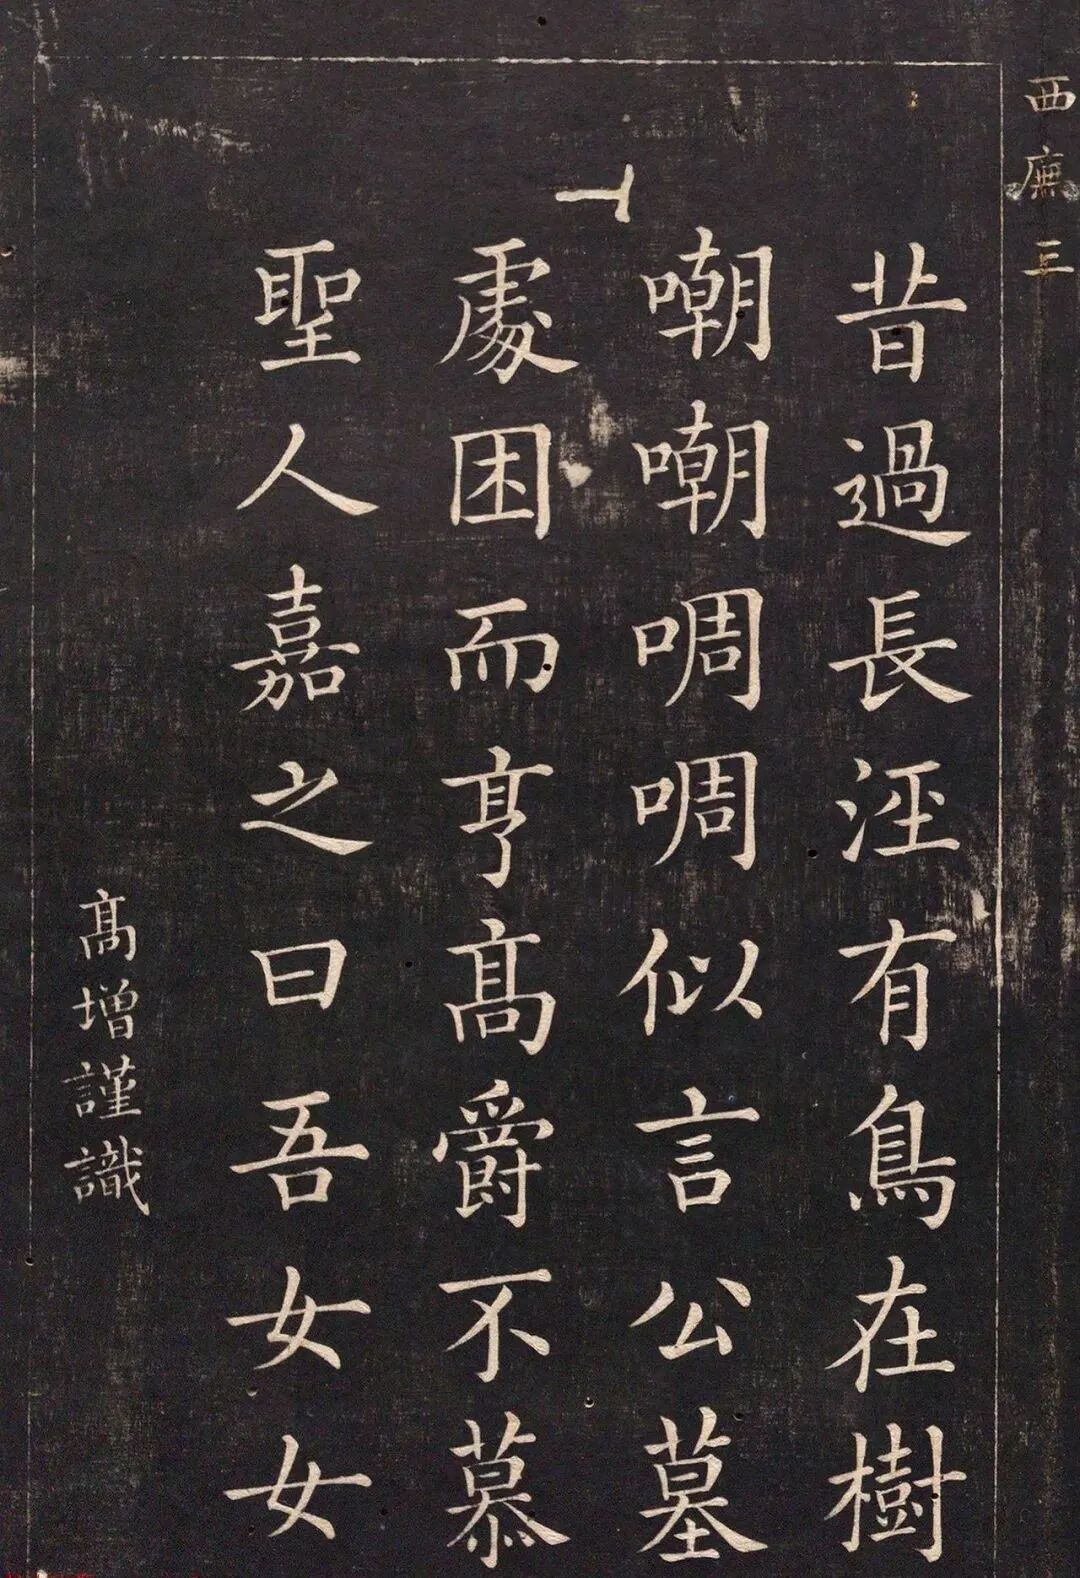 西廡三
昔過長涇有鳥在樹
嘲嘲啁啁似言公墓
處困而亨高爵不慕
聖人嘉之曰吾女女
高增謹識